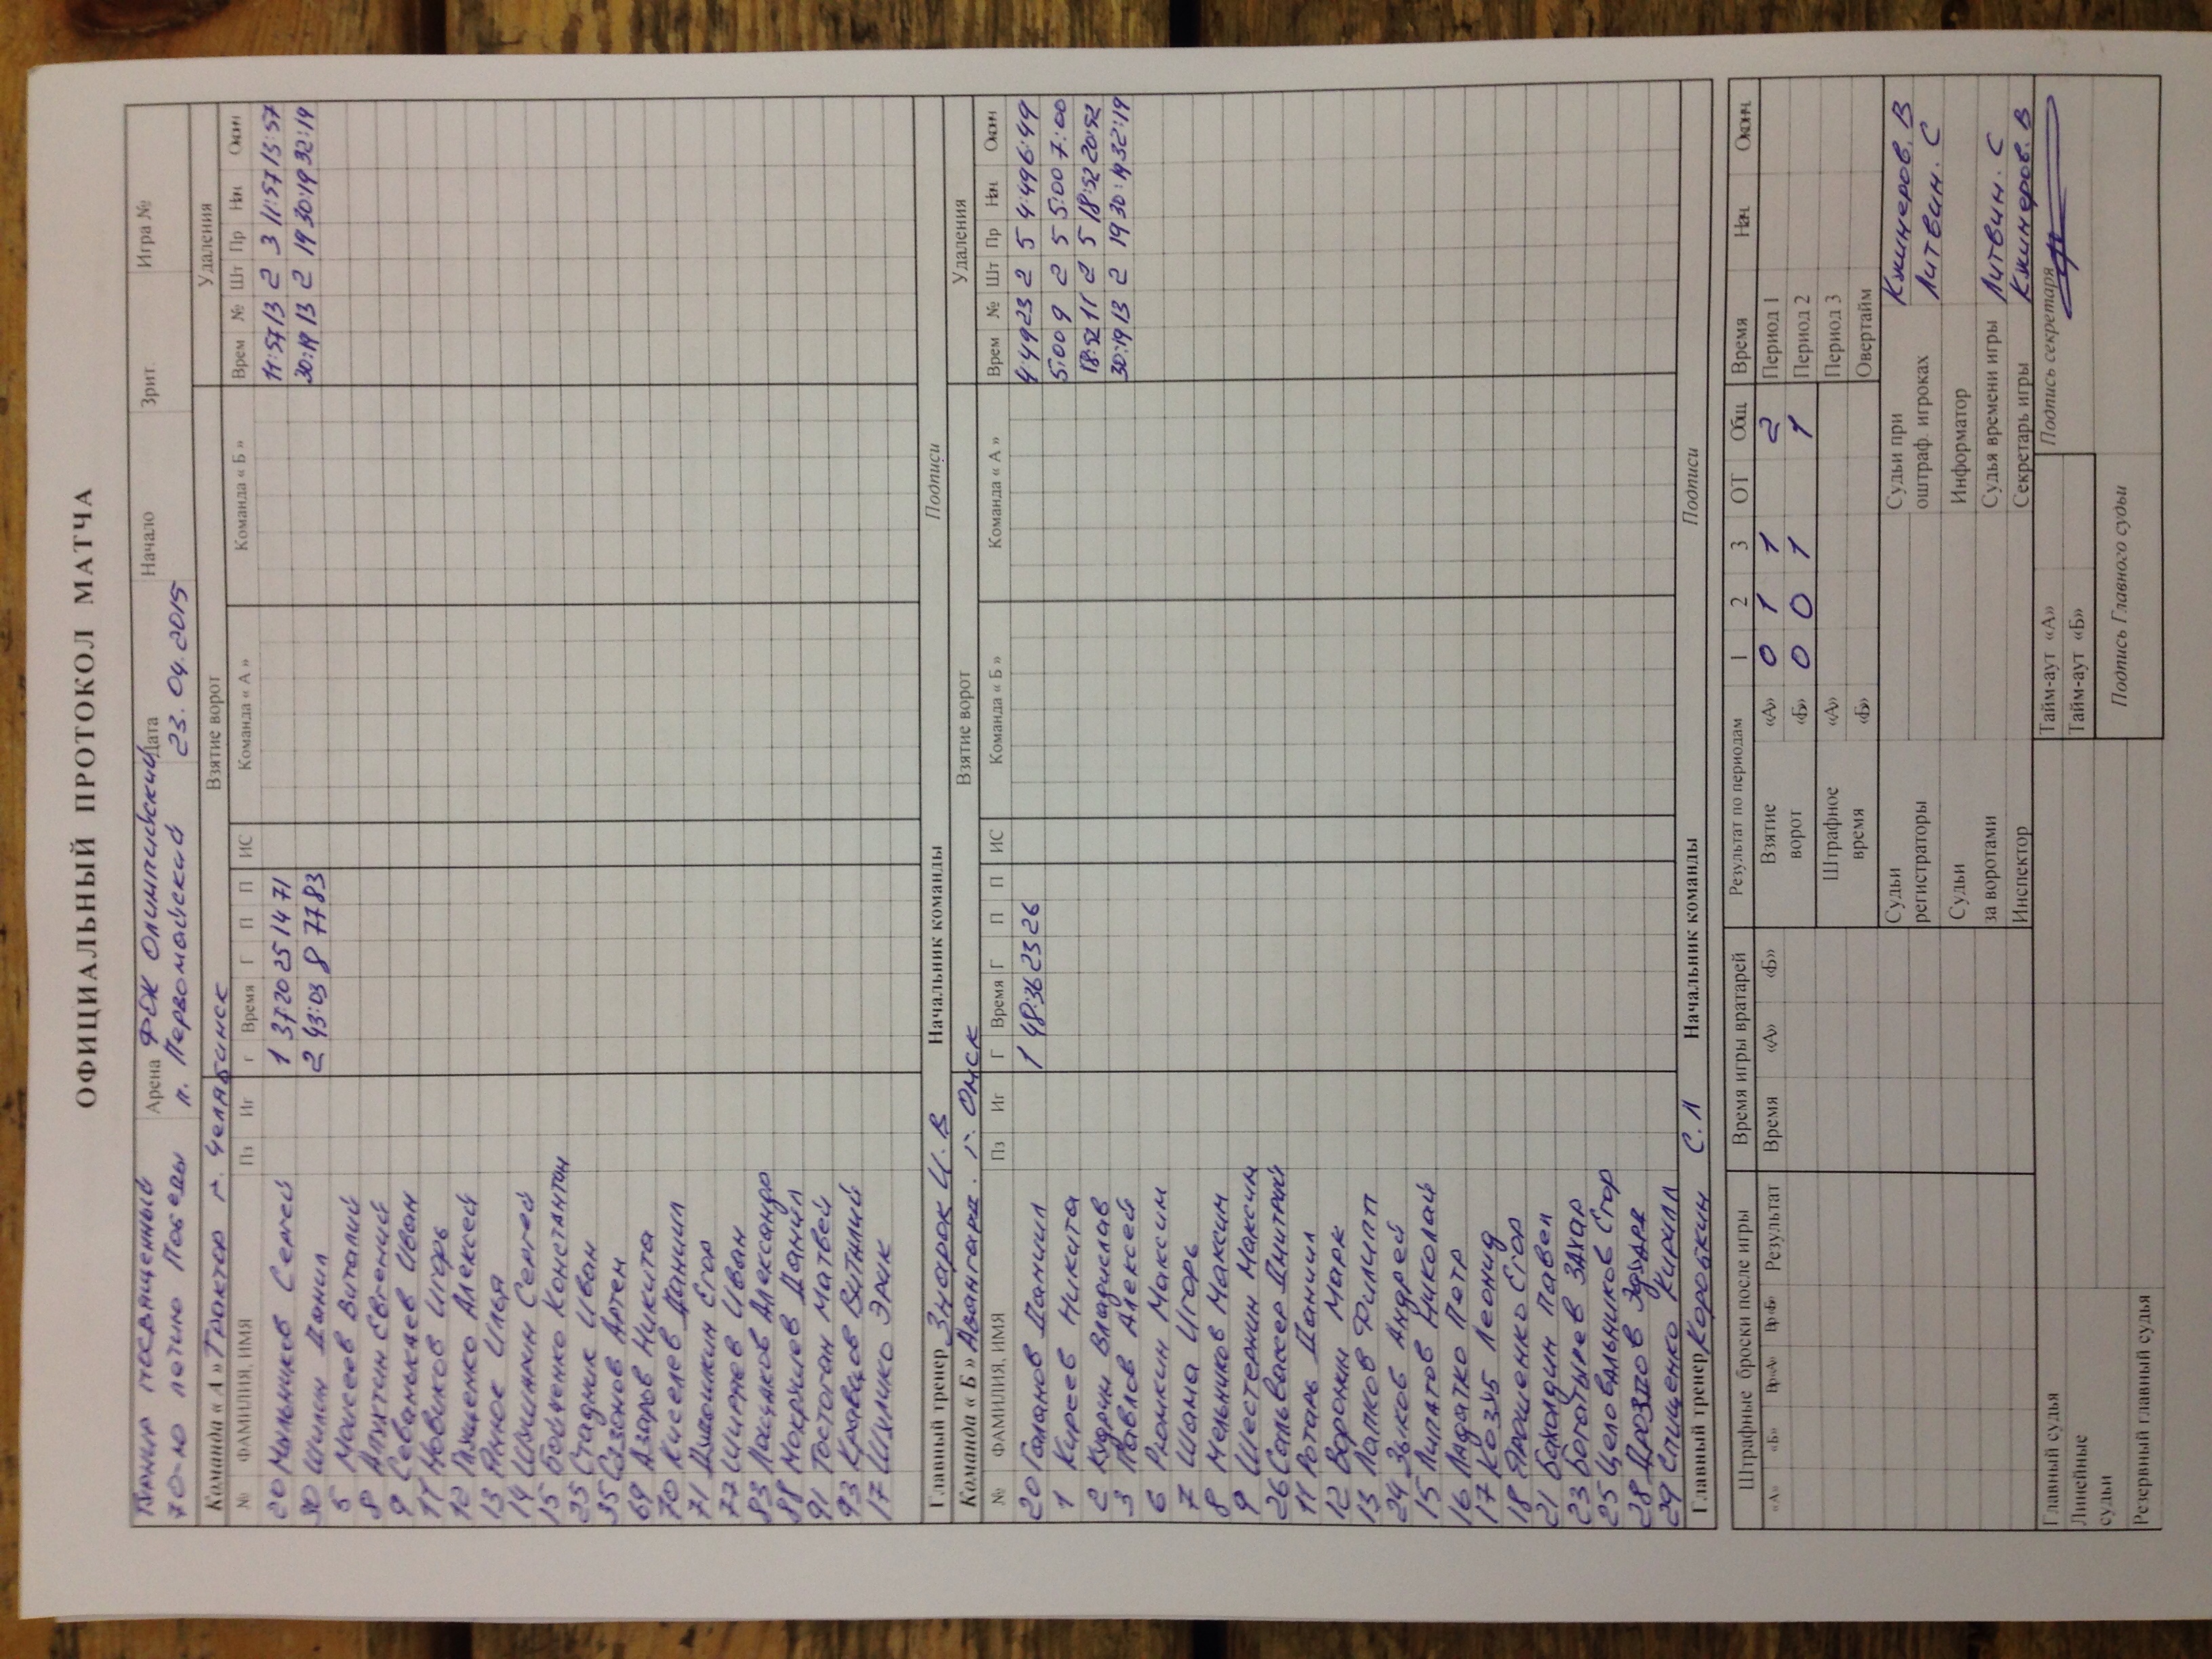 ОФИЦИАЛЬНЫЙ ПРОТОКОЛ МАТЧА
Турнир посвященный Арена ФОК Олимпийский Дата Начало Зрит. Игра №
70-ю летию Победы п. Первомайский 23.04.2015
Команда « А » Трактор г. Челябинск Взятие ворот Удаления
№ ФАМИЛИЯ, ИМЯ Пз Иг г Время Г П П ИС Команда « А » Команда « Б » Врем № Шт Пр Нач Окон
20 Мыльников Сергей 1 37:20 25 14 71 11:57 13 2 3 11:57 13:57
30 Шилин Данил 2 43:03 8 77 83 30:19 13 2 19 30:19 32:19
5 Моисеев Виталий
8 Евгений
9 Иван
11 Новиков Игорь
12 Алексей
13 Илья
14 Сергей
15 Бойченко Константин
25 Стадник Иван
35 Сазонов Артем
69 Азаров Никита
70 Киселев Даниил
71 Егор
77 Иван
83 Александр
88 Данил
91 Матвей
93 Кравцов Виталий
17 Эрик
Главный тренер Знарок И. В Начальник команды Подписи
Команда « Б » Авангард г. Омск Взятие ворот Удаления
№ ФАМИЛИЯ, ИМЯ Пз Иг Г Время Г П П ИС Команда « Б » Команда « А » Врем № Шт Пр Нач Окон
20 Галанов Даниил 1 48:36 23 26 4:49 23 2 5 4:49 6:49
1 Киреев Никита 5:00 9 2 5 5:00 7:00
2 Кудрин Владислав 18:52 11 2 5 18:52 20:52
3 Павлов Алексей 30:19 13 2 19 30:19 32:19
6 Рюмкин Максим
7 Шама Игорь
8 Мельников Максим
9 Шестернин Максим
26 Сальвассер Дмитрий
11 Ротань Даниил
12 Воронин Марк
13 Лапков Филипп
24 Зыков Андрей
15 Липатов Николай
16 Лядатко Петр
17 Козуб Леонид
18 Ярошенко Егор
21 Бахолдин Павел
23 Богатырев Захар
25 Целовальников Егор
28 Дроздов Эдуард
29 Спищенко Кирилл
Главный тренер Коробкин С. Л Начальник команды Подписи
Штрафные броски после игры Время игры вратарей Результат по периодам 1 2 3 ОТ Общ Время Нач. Оконч.
«А» «Б» Вр«А» Вр«Б» Результат Время «А» «Б» Взятие «А» 0 1 1 2 Период 1
ворот «Б» 0 0 1 1 Период 2
Штрафное «А» Период 3
время «Б» Овертайм
Судьи Судьи при Кжинеров. В
регистраторы оштраф. игроках Литвин. С
Судьи Информатор
за воротами Судья времени игры Литвин. С
Инспектор Секретарь игры Кжинеров. В
Главный судья Тайм-аут «А» Подпись секретаря
Линейные Тайм-аут «Б»
судьи Подпись Главного судьи
Резервный главный судья